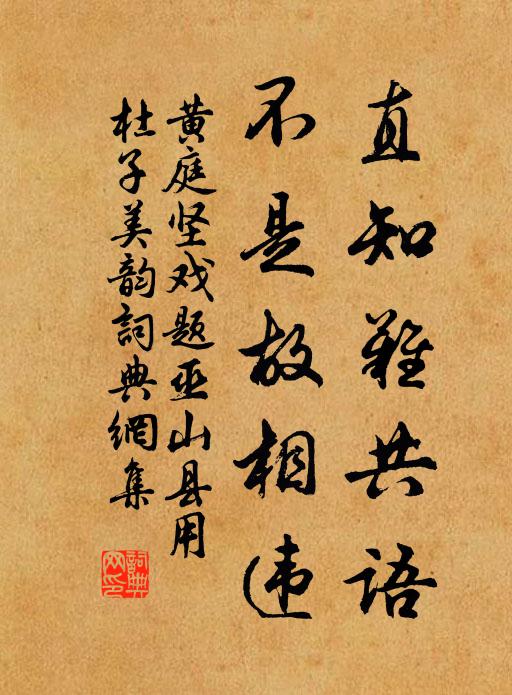 直知難共語
不是故相违
黄庭坚戏题巫山县用
杜子美韵詞典網集
詞典网印